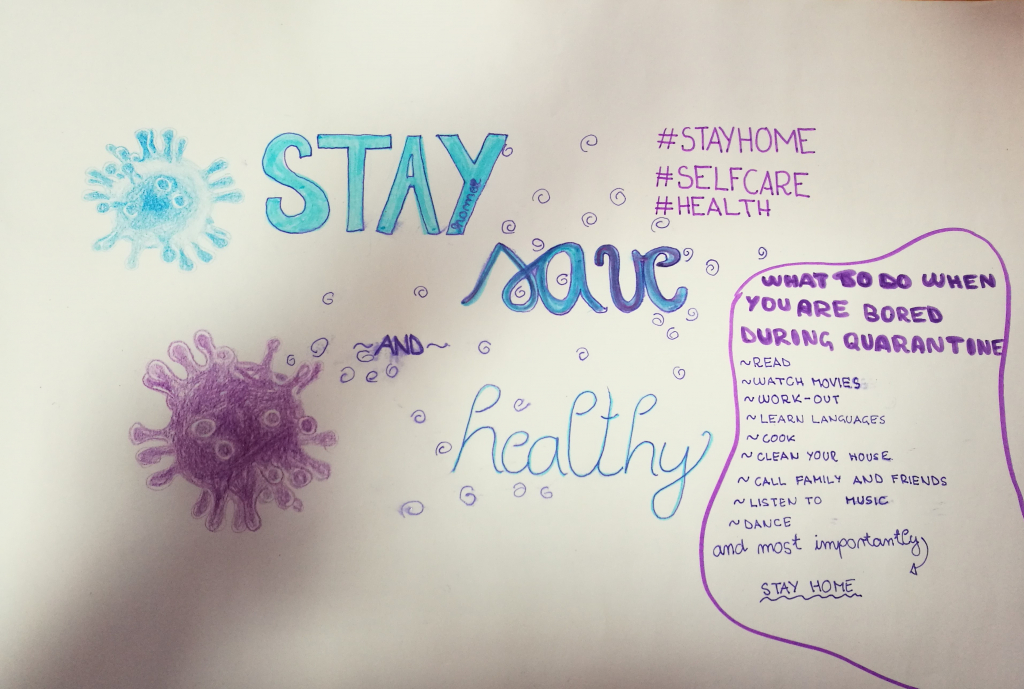 STAY
home
save
~AND~
healthy
#STAYHOME
#SELFCARE
#HEALTH
WHAT TO DO WHEN
YOU ARE BORED
DURING QUARANTINE
~READ
~WATCH MOVIES
~WORK-OUT
~LEARN LANGUAGES
~COOK
~CLEAN YOUR HOUSE
~CALL FAMILY AND FRIENDS
~LISTEN TO MUSIC
~DANCE
and most importantly
STAY HOME